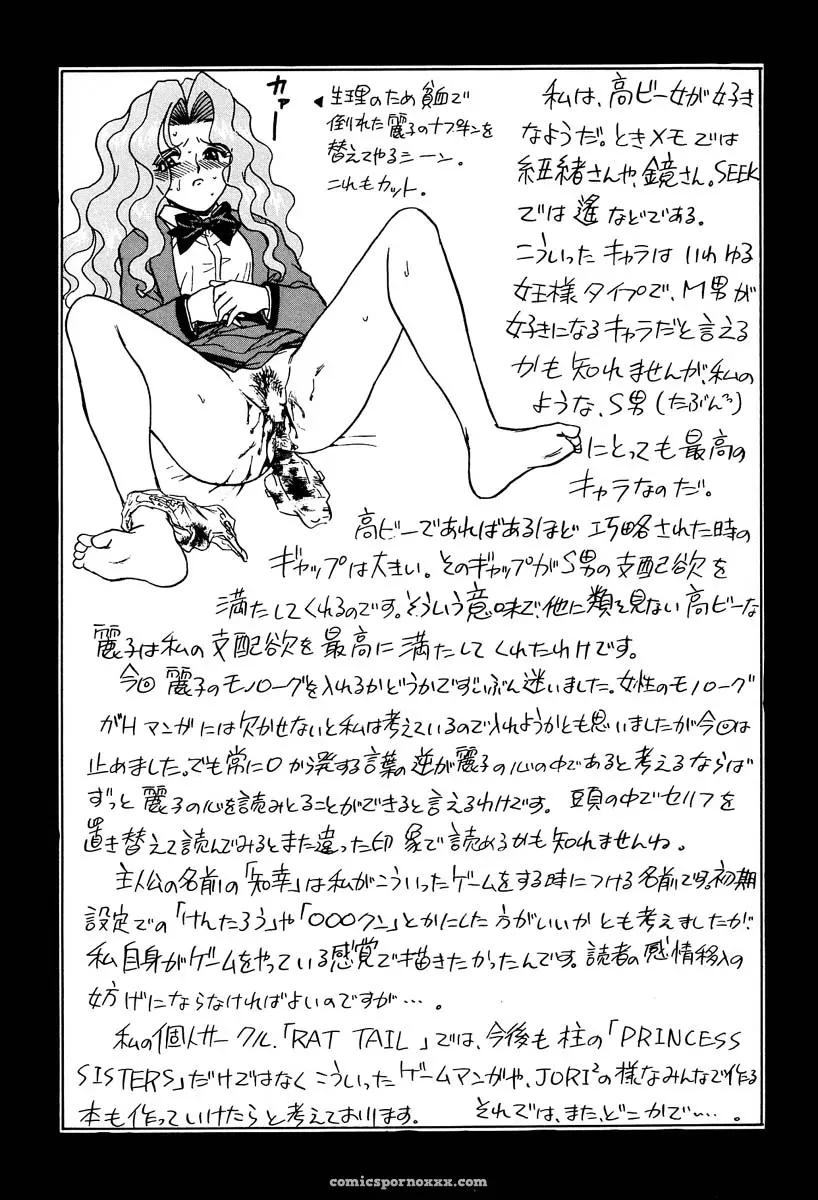 カァーッ
◀生理のため貧血で
倒れた麗子のナプキンを
替えてやるシーン。
これもカット。
私は、高ビー女が好き
なようだ。ときメモでは
紐緒さんや、鏡さん。SEEK
では遥などである。
こういったキャラはいわゆる
女王様タイプで、M男が
好きになるキャラだと言える
かも知れませんが、私の
ような、S男(たぶん)
にとっても最高の
キャラなのだ。
高ビーであればあるほど巧略された時の
ギャップは大きい。そのギャップがS男の支配欲を
満たしてくれるのです。そういう意味で、他に類を見ない高ビーな
麗子は私の支配欲を最高に満たしてくれたわけです。
今回麗子のモノローグを入れるかどうかでずいぶん迷いました。女性のモノローグ
がHマンガには欠かせないと私は考えているので入れようかとも思いましたが今回は
止めました。でも常に口から発する言葉の逆が麗子の心の中であると考えるならば
ずっと麗子の心を読みとることができると言えるわけです。頭の中でセルフを
置き替えて読んでみるとまた違った印象で読めるかも知れませんね。
主人公の名前の「知幸」は私がこういったゲームをする時につける名前です。初期
設定での「けんたろう」や「○○○クン」とかにした方がいいかとも考えましたが、
私自身がゲームをやっている感覚で描きたかったんです。読者の感情移入の
妨げにならなければよいのですが…。
私の個人サークル、「RAT TAIL」では、今後も柱の「PRINCESS
SISTERS」だけではなくこういったゲームマンガや、JORI²の様なみんなで作る
本も作っていけたらと考えております。 それでは、また、どこかで…。
comicspornoxxx.com